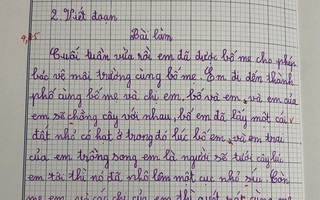 2. Viết đoạn
Bài làm
Cuối tuần vừa rồi em đã được bố mẹ cho phép
bảo vệ môi trường cùng bố mẹ. Em đi đến thành
phố cùng bố mẹ và chị em, bố và em và em của
em sẽ trồng cây với nhau, bố em đã lấy một cái
đất nhỏ có hạt ở trong đó lúc bố em và em trai
của em trồng xong em là người sẽ tưới cây, lúc
em tới thì nó đã nhô lên một cục nhỏ xíu. Còn
mẹ em và các chị của em thì quét rác cùng